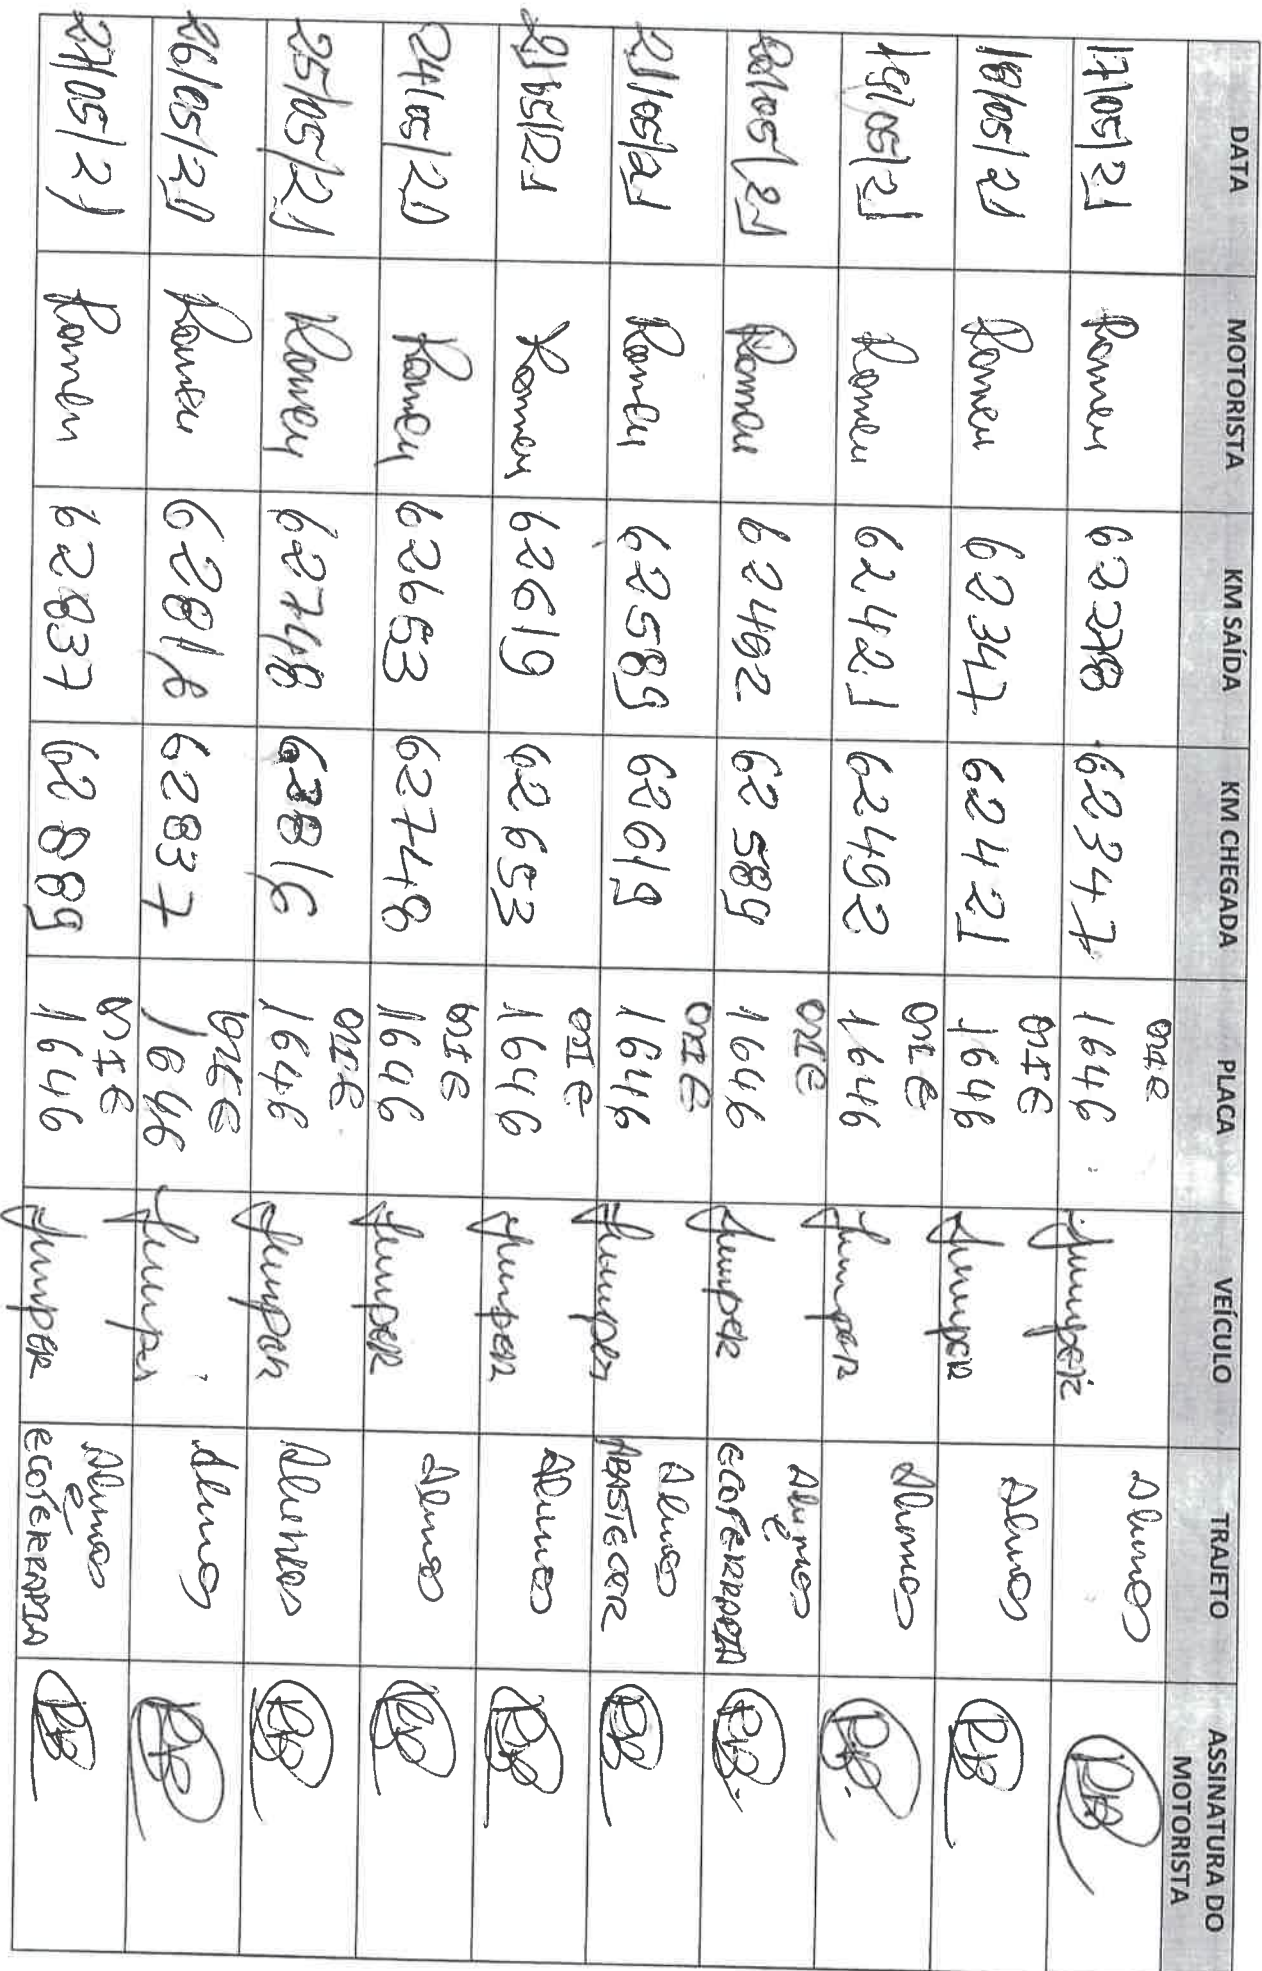 DATA MOTORISTA KM SAÍDA KM CHEGADA PLACA VEÍCULO TRAJETO ASSINATURA DO MOTORISTA
17/05/21 Romeu 62278 62347 OMIE 1646 Jumper Alunos RB
18/05/21 Romeu 62347 62421 OMIE 1646 Jumper Alunos RB
19/05/21 Romeu 62421 62492 OMIE 1646 Jumper Alunos RB
20/05/21 Romeu 62492 62589 OMIE 1646 Jumper Alunos e ECOTERRAPIA RB
21/05/21 Romeu 62589 62619 OMIE 1646 Jumper Alunos ABASTECER RB
21/05/21 Romeu 62619 62653 OMIE 1646 Jumper Alunos RB
24/05/21 Romeu 62653 62748 OMIE 1646 Jumper Alunos RB
25/05/21 Romeu 62748 62816 OMIE 1646 Jumper Alunos RB
26/05/21 Romeu 62816 62837 OMIE 1646 Jumper Alunos RB
27/05/21 Romeu 62837 62889 OMIE 1646 Jumper Alunos e ECOTERRAPIA RB